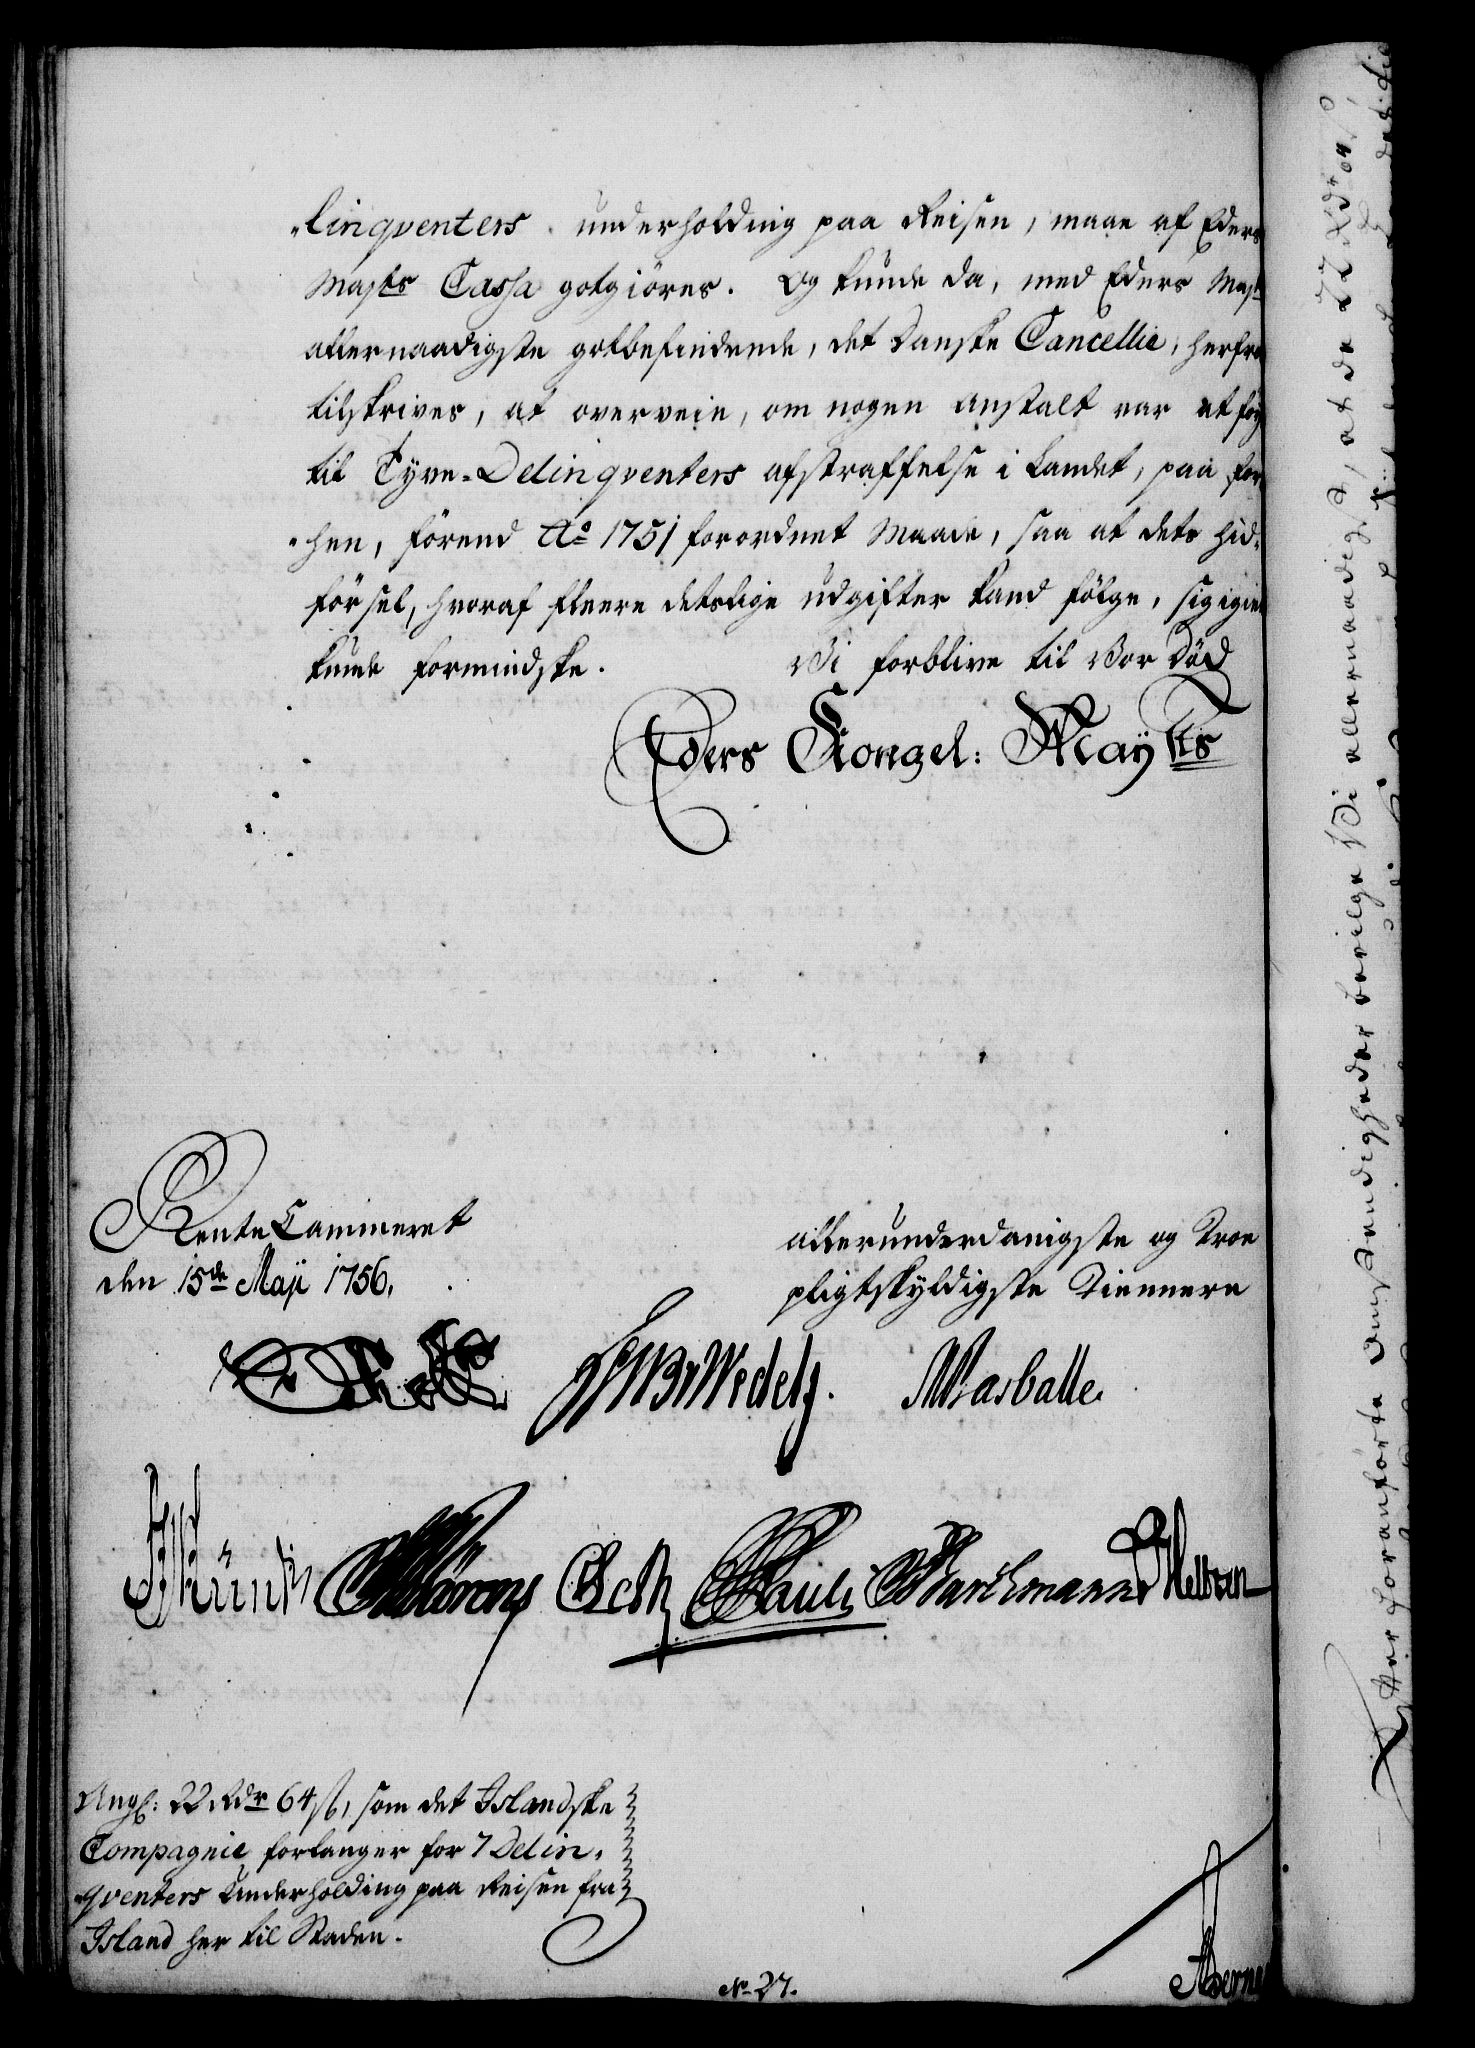 "linqventers underholding paa Reisen, maae af Eders
Majts Cassa godtgiöres. Og kunde da, med Eders Majts
allernaadigste gotbefindende, det Danske Cancellie, herfra
tilskrives, at overveie, om nogen anstalt var at föye
til Tyve-Delinqventers afstraffelse i Landet, paa for
"hen, förend Ao 1751 forordnet Maade, saa at dets hid-
försel, hvoraf fleere deslige udgifter kand fölge, sig igien
kunde formindske. Vi forblive til Vor Död
Eders Kongel: Mayts
RenteCammeret
den 15de Maji 1756.
allerunderdanigste og Troe
pligtskyldigste Tiennere
Wedelj. Wasballe.
Pauli
Ang: 22 Rdr 64 s, som det Islandske
Compagnie forlanger for 7 Delin-
"qventers Underholding paa Reisen fra
Island her til Staden.
No 27.
Efter foranförte Omstændigheder bevilge Vi allernaadigst, at de 22 Rdr 64 s